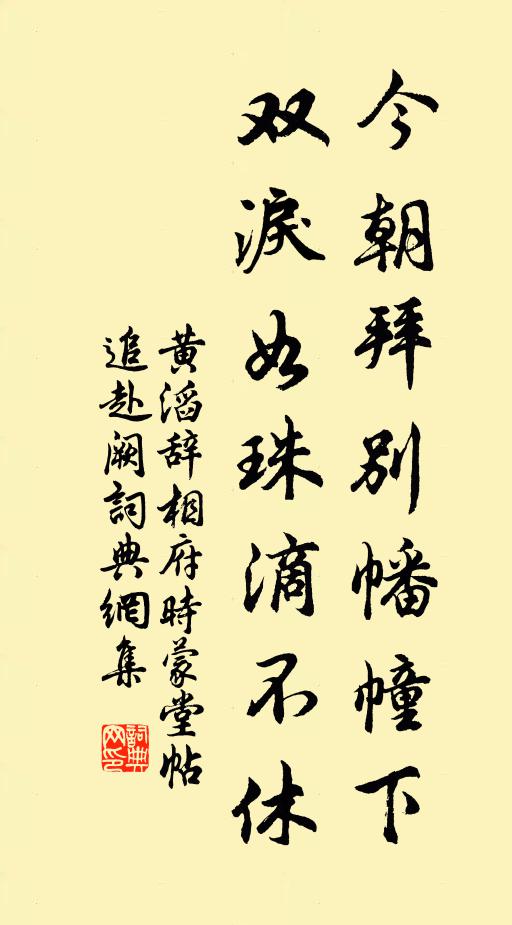 今朝拜别幡幢下
双淚如珠滴不休
黄滔辞相府時蒙堂帖
追赴阙詞典網集
詞典网印